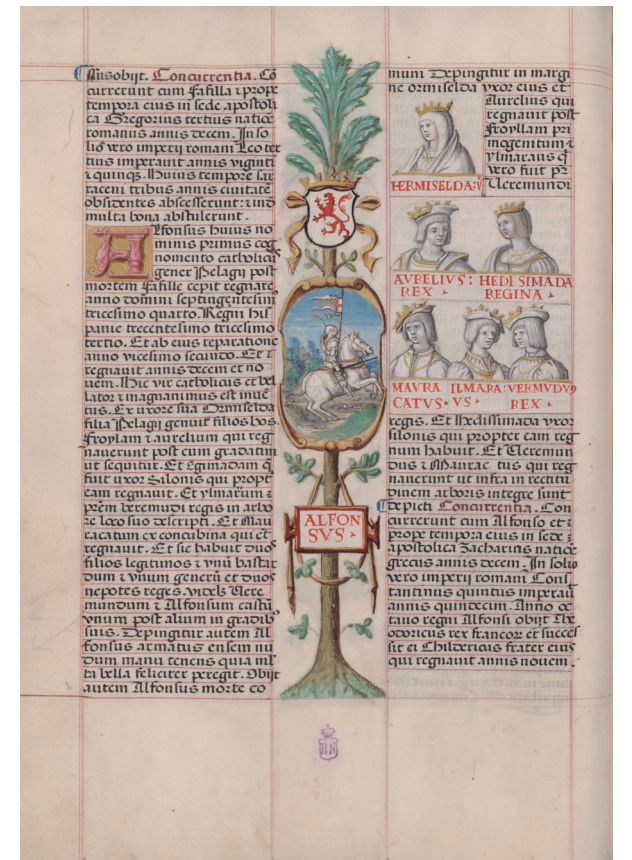 Ausobijt. Concurrentia. Cō
currerunt cum Fafilla ⁊ prope
tempora eius in sede apostoli
ca Gregorius tertius natiōe
romanus annis decem. In so
lio vero imperij romani Leo ter
tius imperauit annis viginti
⁊ quinqꝫ. Huius tempore sar
raceni tribus annis ciuitatē
obsidentes abscesserunt: ⁊ ind
multa bona abstulerunt.
Alfonsus huius no
minis primus cog
nomento catholicꝰ
gener Pelagij post
mortem Fafille cepit regnare
anno domini septingentesim
tricesimo quarto. Regni his
panie trecentesimo tricesimo
tertio. Et ab eius reparatione
anno vicesimo secundo. Et ⁊
regnauit annis decem et no
uem. Hic vir catholicus et bel
lator ⁊ magnanimus est inuē
tus. Ex uxore sua Ormiselda
filia Pelagij genuit filios hos.
Froylam ⁊ aurelium qui reg
nauerunt post eum gradatim
ut sequitur. Et Egimadam q̄
fuit uxor Silonis qui propt
eam regnauit. Et ylmarum ⁊
prēm beremundi regis in arbo
re loco suo descripti. Et Mau
racatum ex concubina qui et
regnauit. Et sic habuit duos
filios legitimos ⁊ vnū bastar
dum ⁊ vnum generū et duos
nepotes reges. videlꝫ Vere
mundum ⁊ Alfonsum castū
vnum post alium in gradib⁹
suis. Depingitur autem Al
fonsus armatus ensem nu
dum manu tenens quia ml̄
ta bella feliciter peregit. Obijt
autem Alfonsus morte co
ALFON
SVS
muni Depingitur in margi
ne ormiselda vxor eius et
Aurelius qui
regnauit post
Froyllam pri
mogenitum ⁊
ylmaraus q̄
vero fuit pr̄
Veremundi
HERMISELDA:V
AVRELIVS: HEDISIMADA
REX REGINA
MAVRA ILMARA: VERMVDVS
CATVS VS REX
regis. Et Hedissimada vxor
silonis qui propter eam reg
num habuit. Et Veremun
dus ⁊ Maurac tus qui reg
nauerunt ut infra in rectitu
dinem arboris integre sunt
depicti Concurrentia. Con
currerunt cum Alfonso et ⁊
prope tempora eius in sede ⁊
apostolica Zacharius natiōe
grecus annis decem. In solio
vero imperij romani Cons
tantinus quintus imperau
annis quindecim. Anno oc
tauo regni Alfonsi obijt The
odoricus rex francor̄ et succes
sit ei Childericus frater eius
qui regnauit annis nouem.
BN